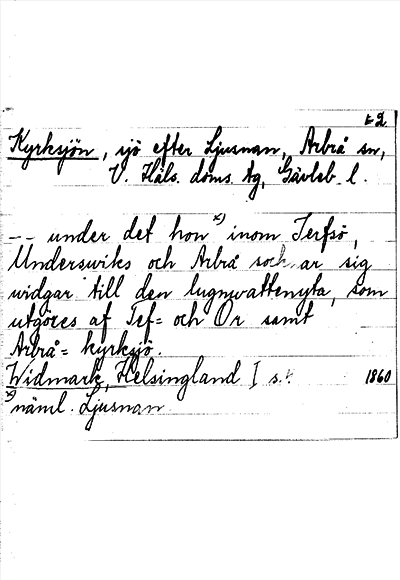 t 2
Kyrksjön, sjö efter Ljusnan, Arbrå sn,
V. Häls. doms. tg, Gävleb. l.
-- under det hon x) inom Terfsö,
Underswiks och Arbrå sockar sig
widgar till den lugnwattenyta, som
utgöres af Tef= och Ör samt
Arbrå= kyrksjö.
Widmark, Helsingland I s. 1860
x) näml. Ljusnan